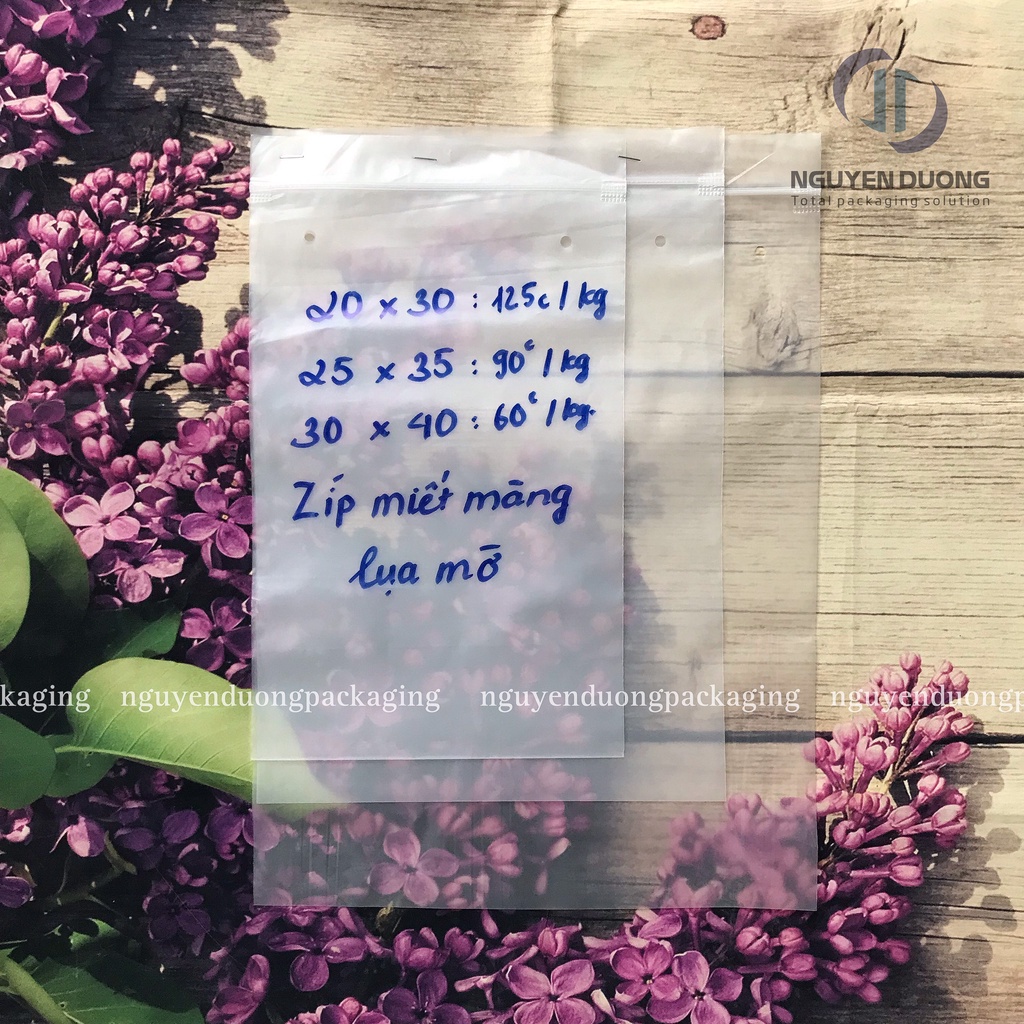 NGUYEN DUONG
Total packaging solution
20 x 30 : 125c / kg
25 x 35 : 90c / kg
30 x 40 : 60c / kg.
Zíp miết màng
lụa mờ
kaging nguyenduongpackaging nguyenduongpackaging nguyenduongp